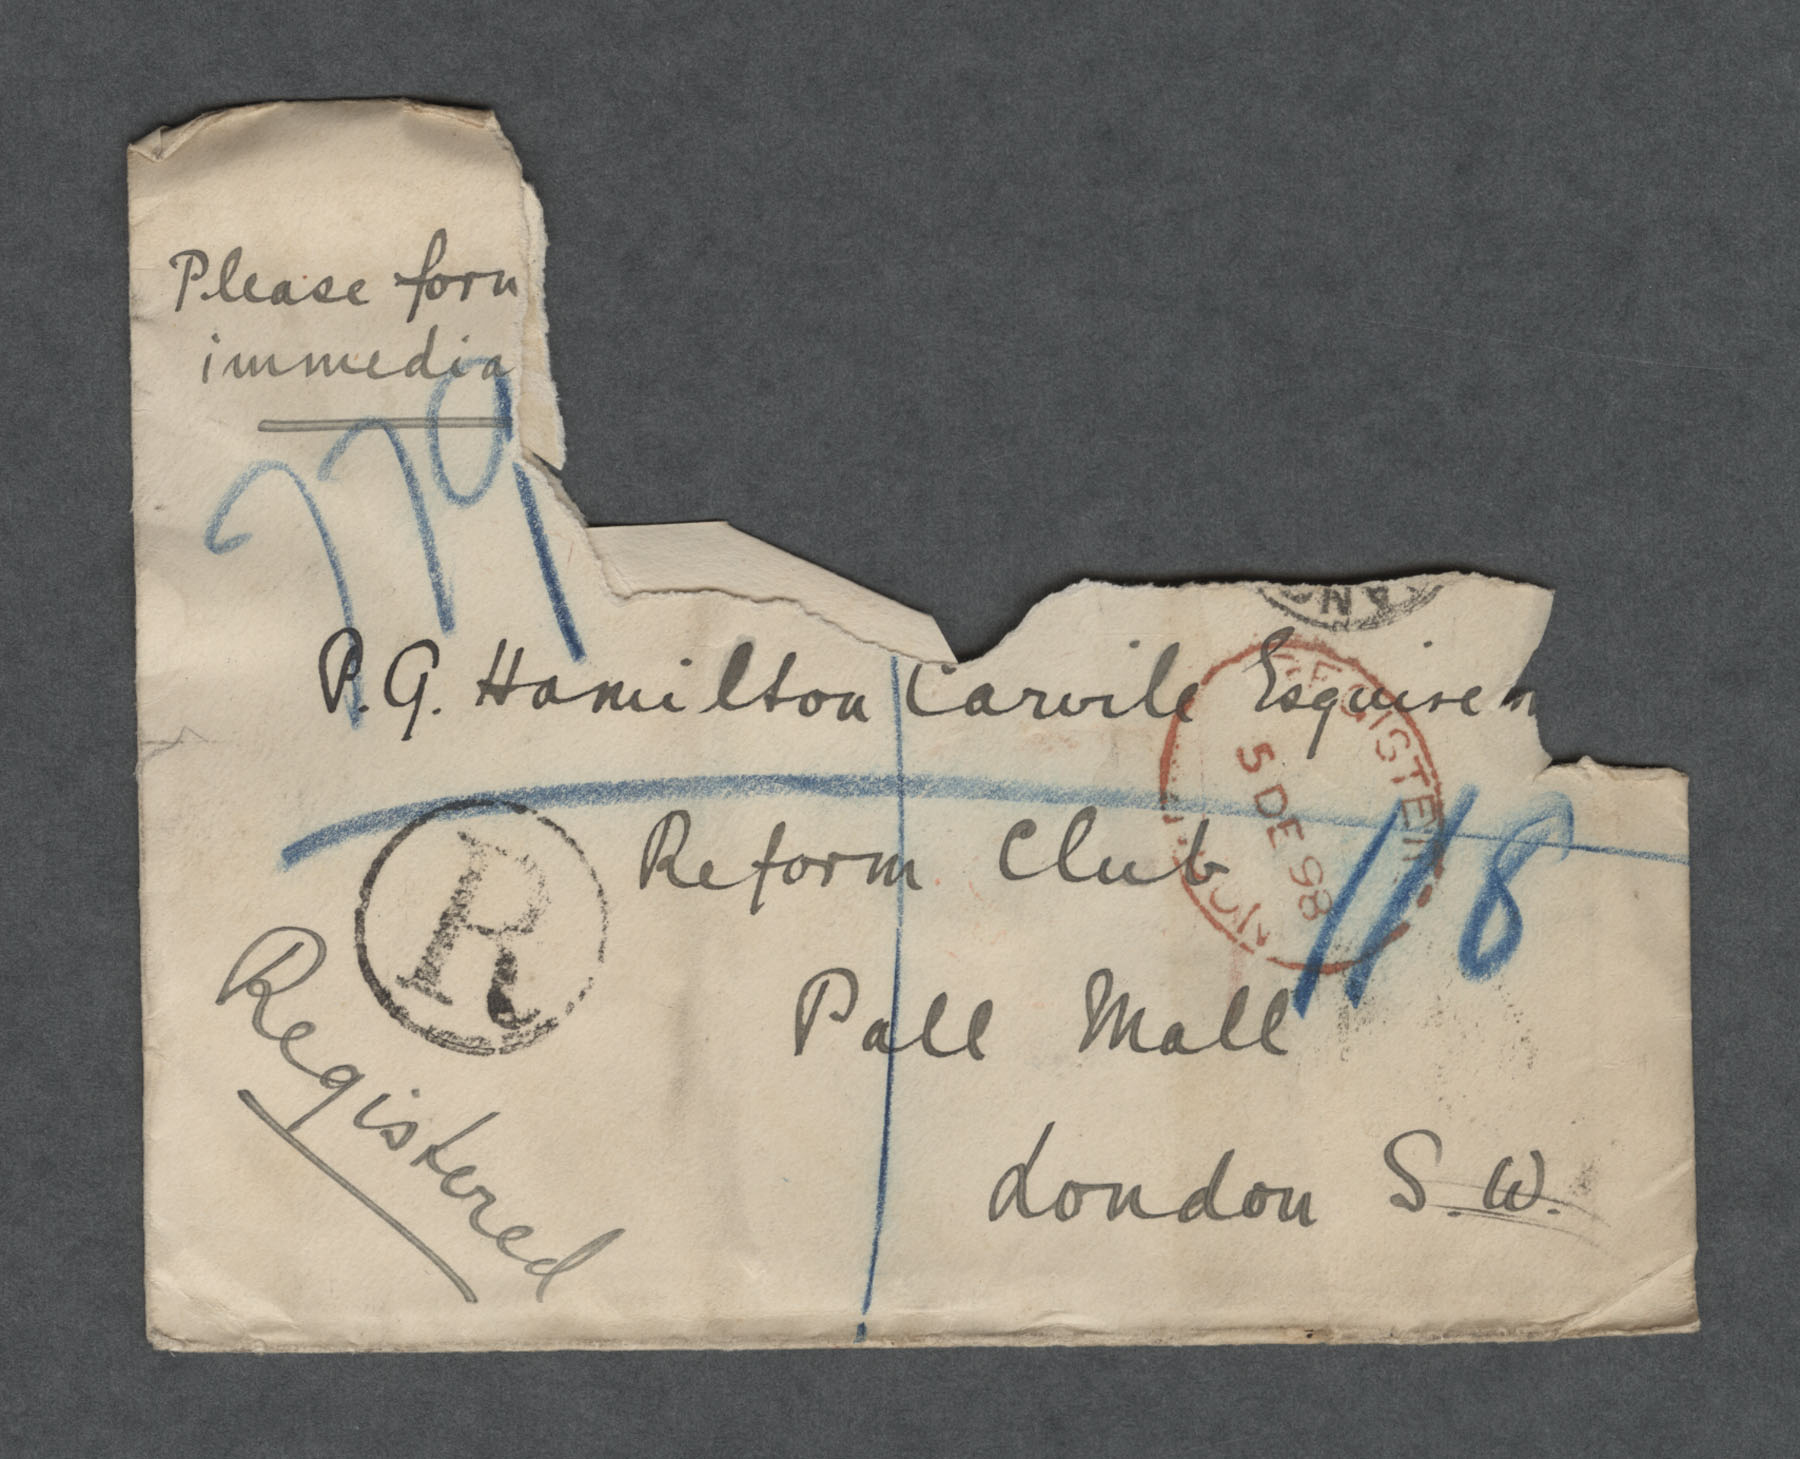 Please forw
immedia
779
P. G. Hamilton Carvile Esquire
REGISTERED
5 DE 98
118
Reform Club
R
Pall Mall
Registered
London S.W.